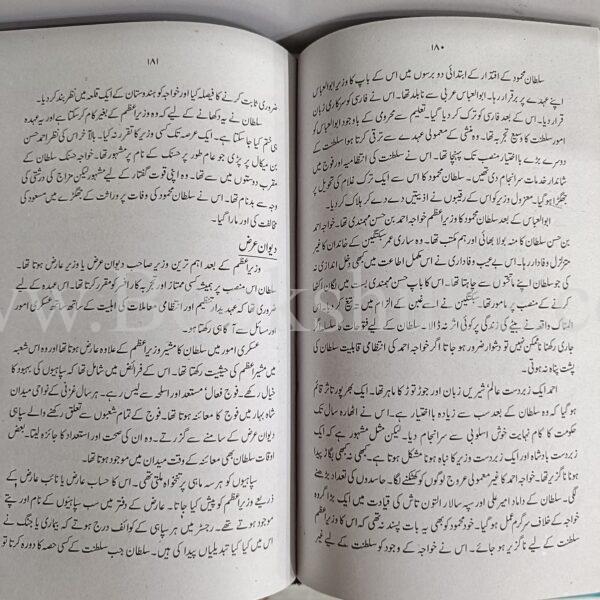 ۱۸۰
سلطان محمود کے اقتدار کے ابتدائی دو برسوں میں اس کے باپ کا وزیر ابوالعباس
اپنے عہدے پر برقرار رہا۔ ابوالعباس عربی سے نابلد تھا۔ اس نے فارسی کو سرکاری زبان
قرار دیا۔ اس کے بعد اس نے فارسی کو ترک کر دیا گیا۔ تعلیم سے محرومی کے باوجود ابوالعباس کو
امور سلطنت کا وسیع تجربہ تھا۔ وہ منشی کے معمولی عہدے سے ترقی کرتا ہوا سلطنت کے
دوسرے بڑے بااختیار منصب تک پہنچا تھا۔ اس نے سلطنت کی انتظامیہ اور فوج میں
شاندار خدمات سرانجام دی تھیں۔ سلطان محمود کا اس سے ایک ترک غلام کی تحویل پر
جھگڑا ہو گیا۔ معزول وزیر کو اس کے رقیبوں نے اذیتیں دے دے کر ہلاک کر دیا۔
ابوالعباس کے بعد سلطان محمود کا وزیراعظم خواجہ احمد بن حسن مہمندی تھا۔ خواجہ احمد
بن حسن سلطان کا منہ بولا بھائی اور ہم مکتب تھا۔ وہ ساری عمر سبکتگین کے خاندان کا غیر
متزلزل وفادار رہا۔ اس بے عیب وفاداری نے اس مکمل اطاعت میں بھی دخل اندازی نہ
کی جو سلطان اپنے ماتحتوں سے چاہتا تھا۔ اس کا باپ حسن مہمندی بست میں محصول جمع
کرنے پر مامور تھا۔ سبکتگین نے اسے غبن کے الزام میں تختۂ دار پر چڑھا دیا۔ اس
المناک واقعہ نے بیٹے کی زندگی پر کوئی اثر نہ ڈالا۔ سلطان کے لیے فتوحات کا سلسلہ
جاری رکھنا ناممکن نہیں تو دشوار ضرور ہو جاتا اگر خواجہ احمد کی انتظامی قابلیت سلطان کی
پشت پناہ نہ ہوتی۔
احمد ایک زبردست عالم شیریں زبان اور جوڑ توڑ کا ماہر تھا۔ ایک بھرپور تاثر قائم
ہو گیا کہ وہ سلطان کے بعد سب سے زیادہ بااختیار ہے۔ اس نے اٹھارہ سال تک
حکومت کا کام نہایت خوش اسلوبی سے سرانجام دیا۔ لیکن مثل مشہور ہے کہ ایک
زبردست بادشاہ اور ایک زبردست وزیر کا نباہ ہونا مشکل ہوتا ہے۔ کبھی نہ کبھی بگاڑ پیدا
ہونا ناگزیر تھا۔ خواجہ احمد کا غیر معمولی عروج لوگوں کو کھٹکنے لگا۔ حاسدوں کی تعداد بڑھنے
لگی۔ سلطان کے داماد امیر علی اور سپہ سالار التون تاش کی قیادت میں ایک بڑا گروہ
خواجہ کے خلاف سرگرم عمل ہو گیا۔ خود محمود کو بھی یہ بات پسند نہ تھی کہ اس کا وزیراعظم
سلطنت کے لیے ناگزیر ہو جائے۔ اس نے خواجہ کے وجود کو سلطنت کے لیے غیر
۱۸۱
ضروری ثابت کرنے کا فیصلہ کیا اور خواجہ کو ہندوستان کے ایک قلعہ میں نظر بند کر دیا۔
سلطان نے یہ دکھانے کے لیے کہ وہ وزیراعظم کے بغیر کام کر سکتا ہے اور یہ عہدہ
ہی ختم کیا جا سکتا ہے۔ ایک عرصہ تک کسی وزیر کا تقرر نہ کیا۔ بالآخر اس کی نظر احمد حسن
بن میکال پر پڑی جو عام طور پر حسنک کے نام پر مشہور تھا۔ خواجہ حسنک سلطان کے
مقرب دوستوں میں سے تھا۔ وہ اپنی قوت گفتار کے لیے مشہور لیکن مزاج کی درشتی کی
وجہ سے بدنام تھا۔ اس نے سلطان محمود کی وفات پر وراثت کے جھگڑے میں مسعود کی
مخالفت کی اور مارا گیا۔
دیوان عرض
وزیراعظم کے بعد اہم ترین وزیر صاحب دیوان عرض یا وزیر عارض ہوتا تھا۔
سلطان اس منصب پر ہمیشہ کسی ممتاز اور تجربہ کار افسر کو مقرر کرتا تھا۔ اس عہدہ کے لیے
ضروری تھا کہ عہدیدار تنظیم اور انتظامی معاملات کی اہلیت کے ساتھ ساتھ عسکری امور
اور مسائل سے آگاہی رکھتا ہو۔
عسکری امور میں سلطان کا مشیر وزیراعظم کے علاوہ عارض ہوتا تھا اور وہ اس شعبہ
میں مشیراعظم کی حیثیت رکھتا تھا۔ اس کے فرائض میں شامل تھا کہ سپاہیوں کی بہبود کا
خیال رکھے۔ فوج فعال مستعد اور اسلحہ سے لیس رہے۔ ہر سال غزنی کے نواحی میدان
شاہ بہار میں فوج کا معائنہ ہوتا تھا۔ فوج کے تمام شعبوں سے تعلق رکھنے والے سپاہی
دیوان عرض کے سامنے سے گزرتے۔ وہ ان کی صحت اور استعداد کا جائزہ لیتا۔ بعض
اوقات سلطان بھی معائنہ کے وقت میدان میں موجود ہوتا تھا۔
سپاہیوں کو ہر سہ ماہی پر تنخواہ ملتی تھی۔ اس کا حساب عارض یا نائب عارض کے
ذریعے وزیراعظم کو پیش کیا جاتا تھا۔ عارض کے دفتر میں سب سپاہیوں کے نام اور پتے
موجود ہوتے تھے۔ رجسٹر میں ہر سپاہی کے کوائف درج ہوتے تھے کہ بیماری یا جنگ نے
اس میں کیا کیا تبدیلیاں پیدا کی ہیں۔ سلطان جب سلطنت کے کسی حصہ کا دورہ کرتا تو